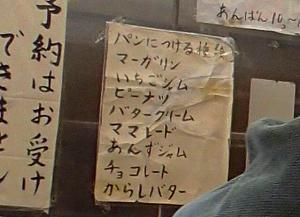 予約はお受け
できません
パンにつける種類
マーガリン
いちごジャム
ピーナツ
バタークリーム
ママレード
あんずジャム
チョコレート
からしバター
あんぱん